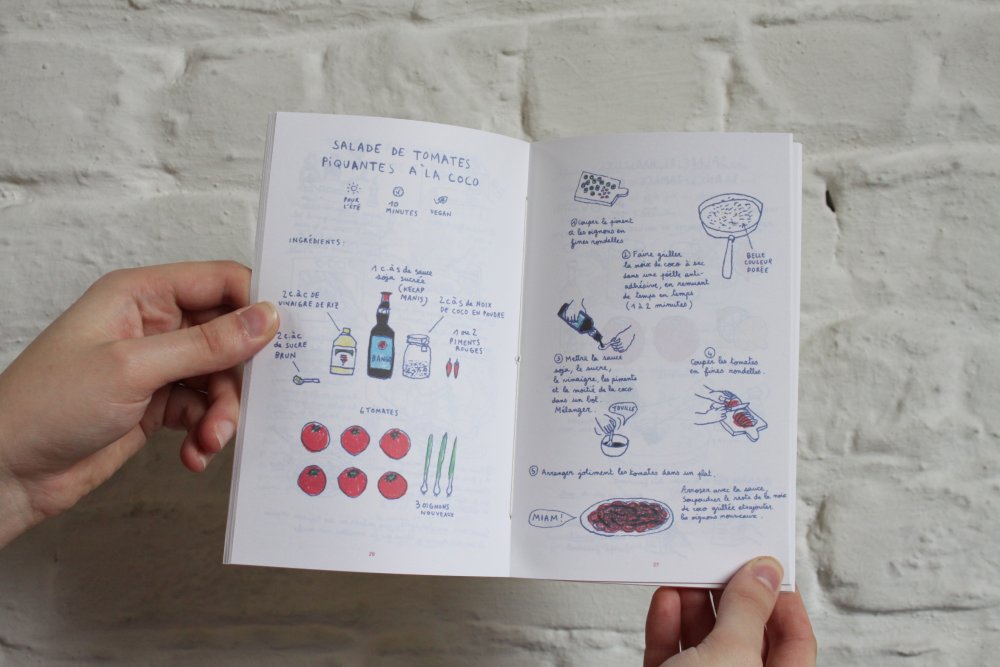 SALADE DE TOMATES
PIQUANTES À LA COCO
POUR
L'ÉTÉ
10
MINUTES
VEGAN
INGRÉDIENTS:
1 c.às de sauce
soja sucrée
(KECAP
MANIS)
2 c.àc DE
VINAIGRE DE RIZ
2 c.às DE NOIX
DE COCO EN POUDRE
2 c.àc
de SUCRE
BRUN
1 ou 2
PIMENTS
ROUGES
BANGO
6 TOMATES
3 OIGNONS
NOUVEAUX
26
① Couper le piment
et les oignons en
fines rondelles
② Faire griller
la noix de coco à sec
dans une poêle anti-
adhésive, en remuant
de temps en temps
(1 à 2 minutes)
BELLE
COULEUR
DORÉE
③ Mettre la sauce
soja, le sucre,
le vinaigre, les piments
et la moitié de la coco
dans un bol.
Mélanger.
TOUILLE
④
Couper les tomates
en fines rondelles.
⑤ Arranger joliment les tomates dans un plat.
Arroser avec la sauce,
Saupoudrer le reste de la noix
de coco grillée et rajouter
les oignons nouveaux.
MIAM!
27